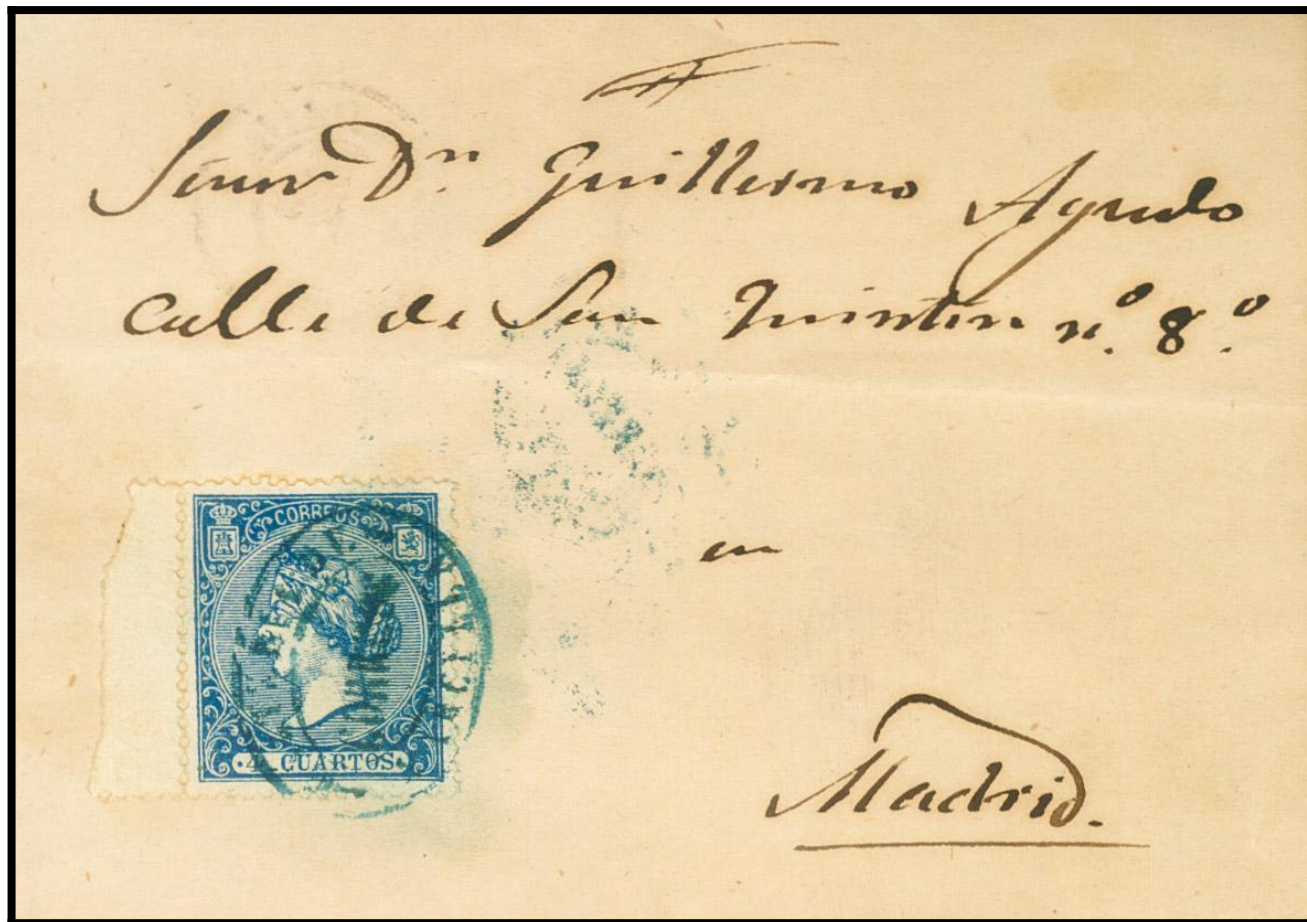 Señor Dⁿ Guillermo Agudo
Calle de San Quintin nº 8º
en
Madrid.
CORREOS
4 CUARTOS